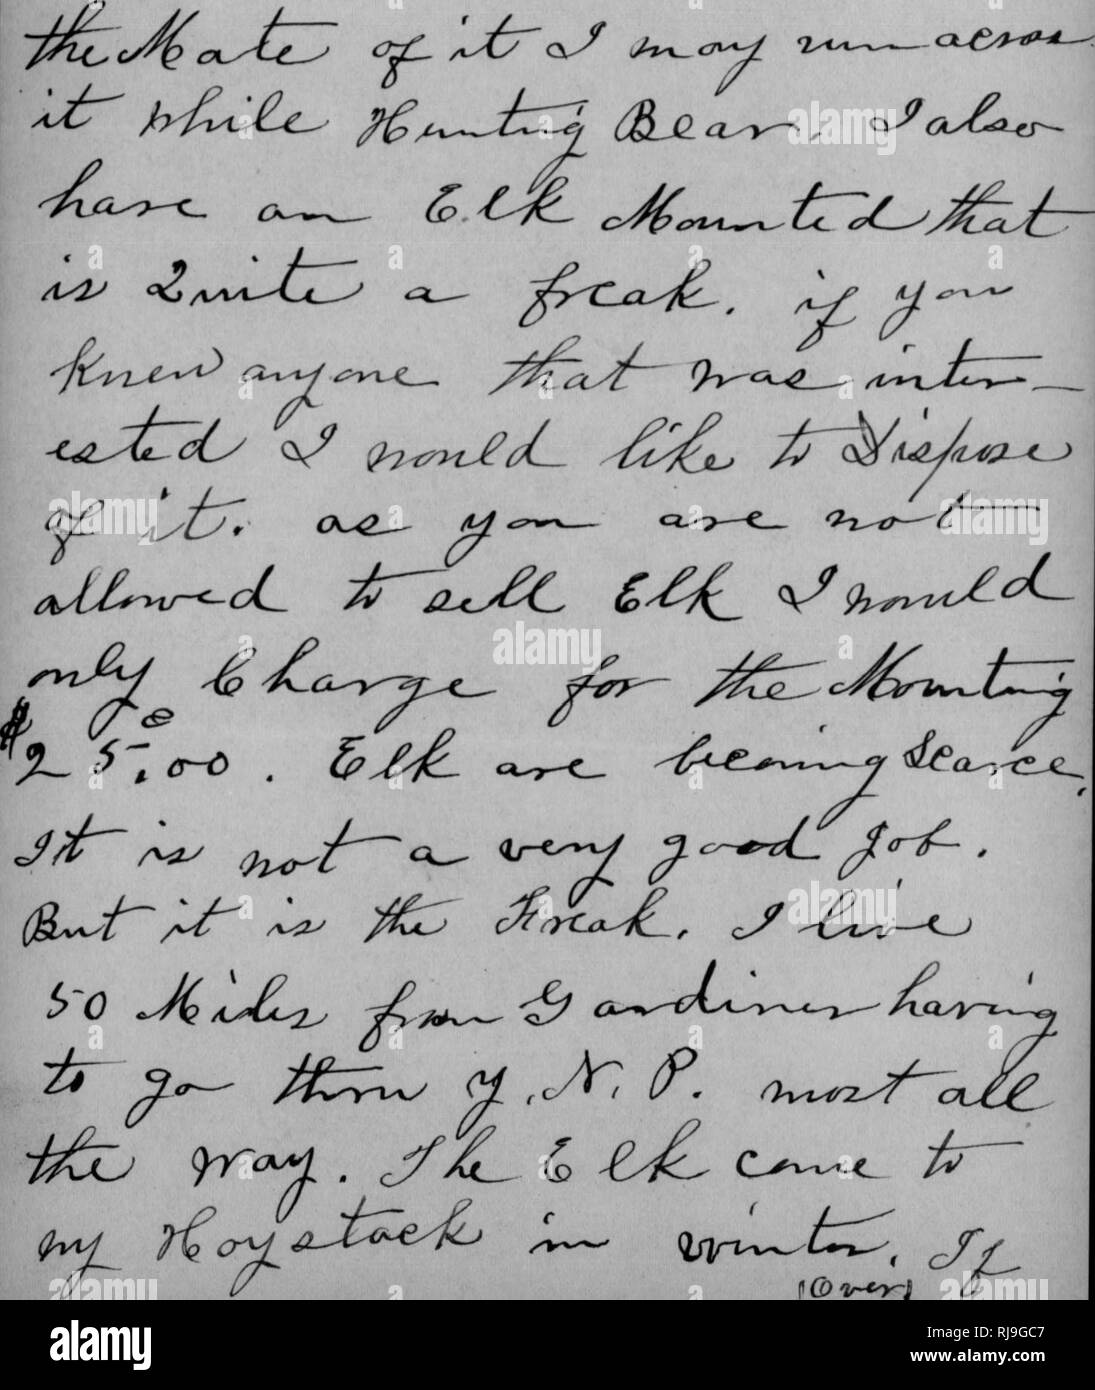 the Mate of it I may run across
it while Hunting Bear. I also
have an Elk Mounted that
is Quite a freak. if you
Knew anyone that was inter-
ested I would like to Dispose
of it. as you are not
allowed to sell Elk I would
only Charge for the Mounting
$25.00. Elk are becoming Scarce.
It is not a very good Job.
But it is the Freak. I live
50 Miles from Gardiner having
to go thru Y.N.P. most all
the way. The Elk came to
my Haystack in winter. If
(Over)
alamy
Image ID: RJ9GC7
www.alamy.com